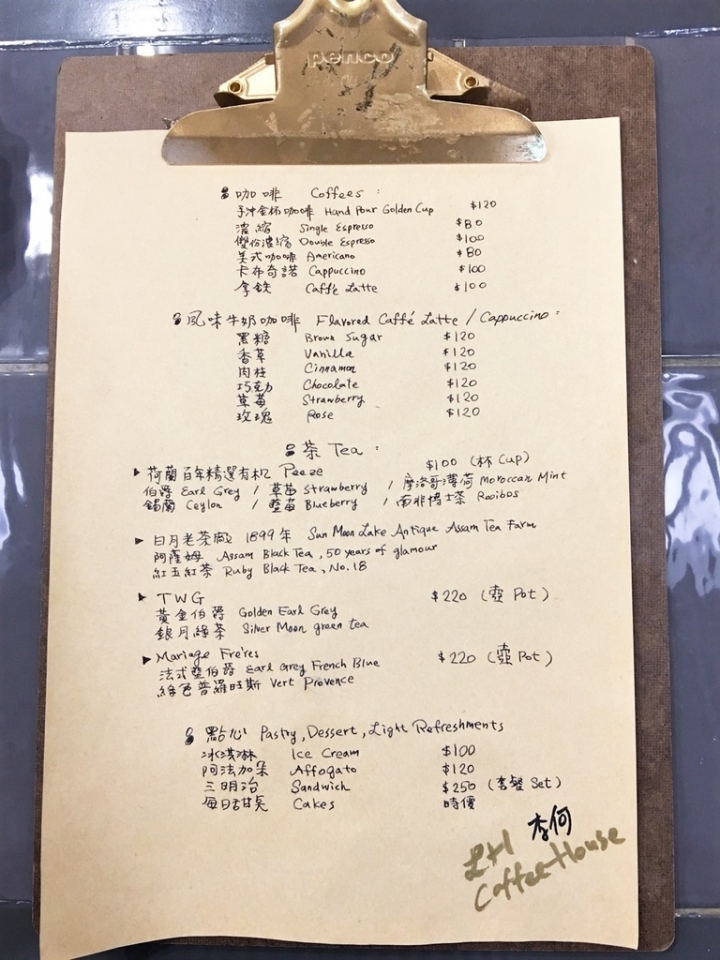 penco
咖啡 Coffees :
手沖金杯咖啡 Hand Pour Golden Cup $120
濃縮 Single Espresso $80
雙份濃縮 Double Espresso $100
美式咖啡 Americano $80
卡布奇諾 Cappuccino $100
拿鐵 Caffé Latte $100
風味牛奶咖啡 Flavored Caffé Latte / Cappuccino :
黑糖 Brown Sugar $120
香草 Vanilla $120
肉桂 Cinnamon $120
巧克力 Chocolate $120
草莓 Strawberry $120
玫瑰 Rose $120
茶 Tea :
▶ 荷蘭百年精選有机 Peeze $100 (杯 Cup)
伯爵 Earl Grey / 草莓 Strawberry / 摩洛哥薄荷 Moroccan Mint
錫蘭 Ceylon / 藍莓 Blueberry / 南非博士茶 Rooibos
▶ 日月老茶廠 1899年 Sun Moon Lake Antique Assam Tea Farm
阿薩姆 Assam Black Tea, 50 years of glamour
紅玉紅茶 Ruby Black Tea, No.18
▶ TWG $220 (壺 Pot)
黃金伯爵 Golden Earl Grey
銀月綠茶 Silver Moon green tea
▶ Mariage Freres $220 (壺 Pot)
法式藍伯爵 Earl Grey French Blue
綠色普羅旺斯 Vert Provence
點心 Pastry, Dessert, Light Refreshments
冰淇淋 Ice Cream $100
阿法加朵 Affogato $120
三明治 Sandwich $250 (套餐 Set)
每日甜點 Cakes 時價
李何
LHI
Coffee House